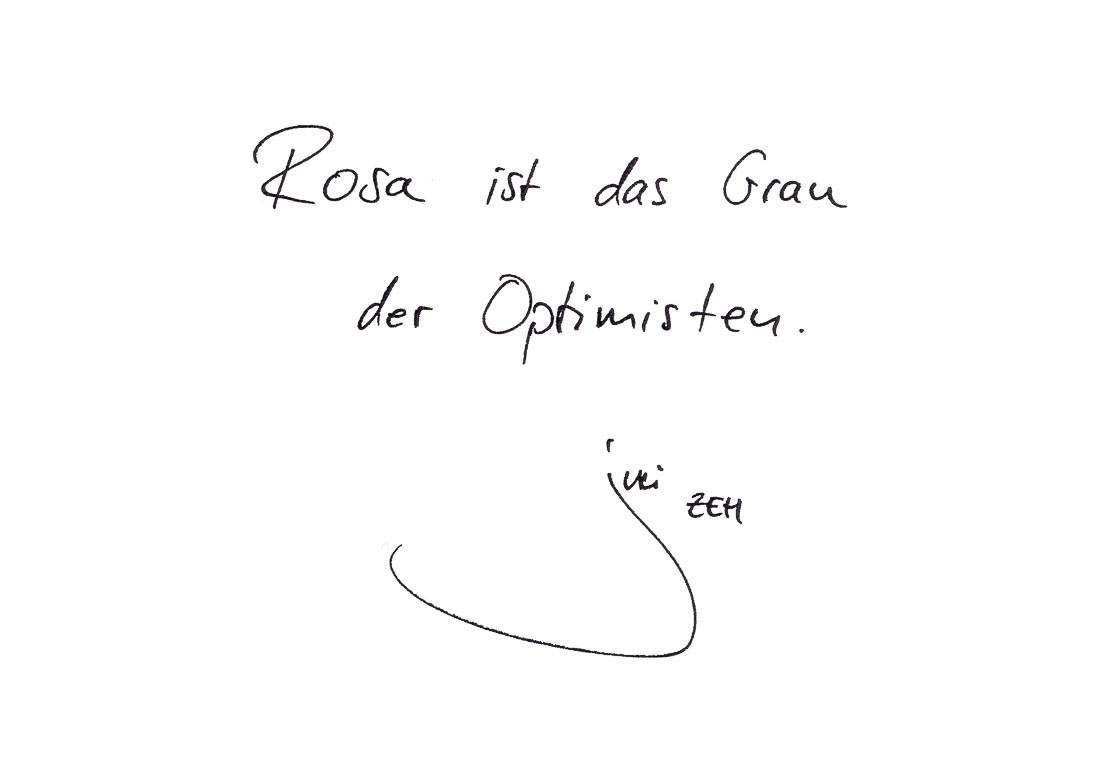 Rosa ist das Grau
der Optimisten.
Juli
ZEH